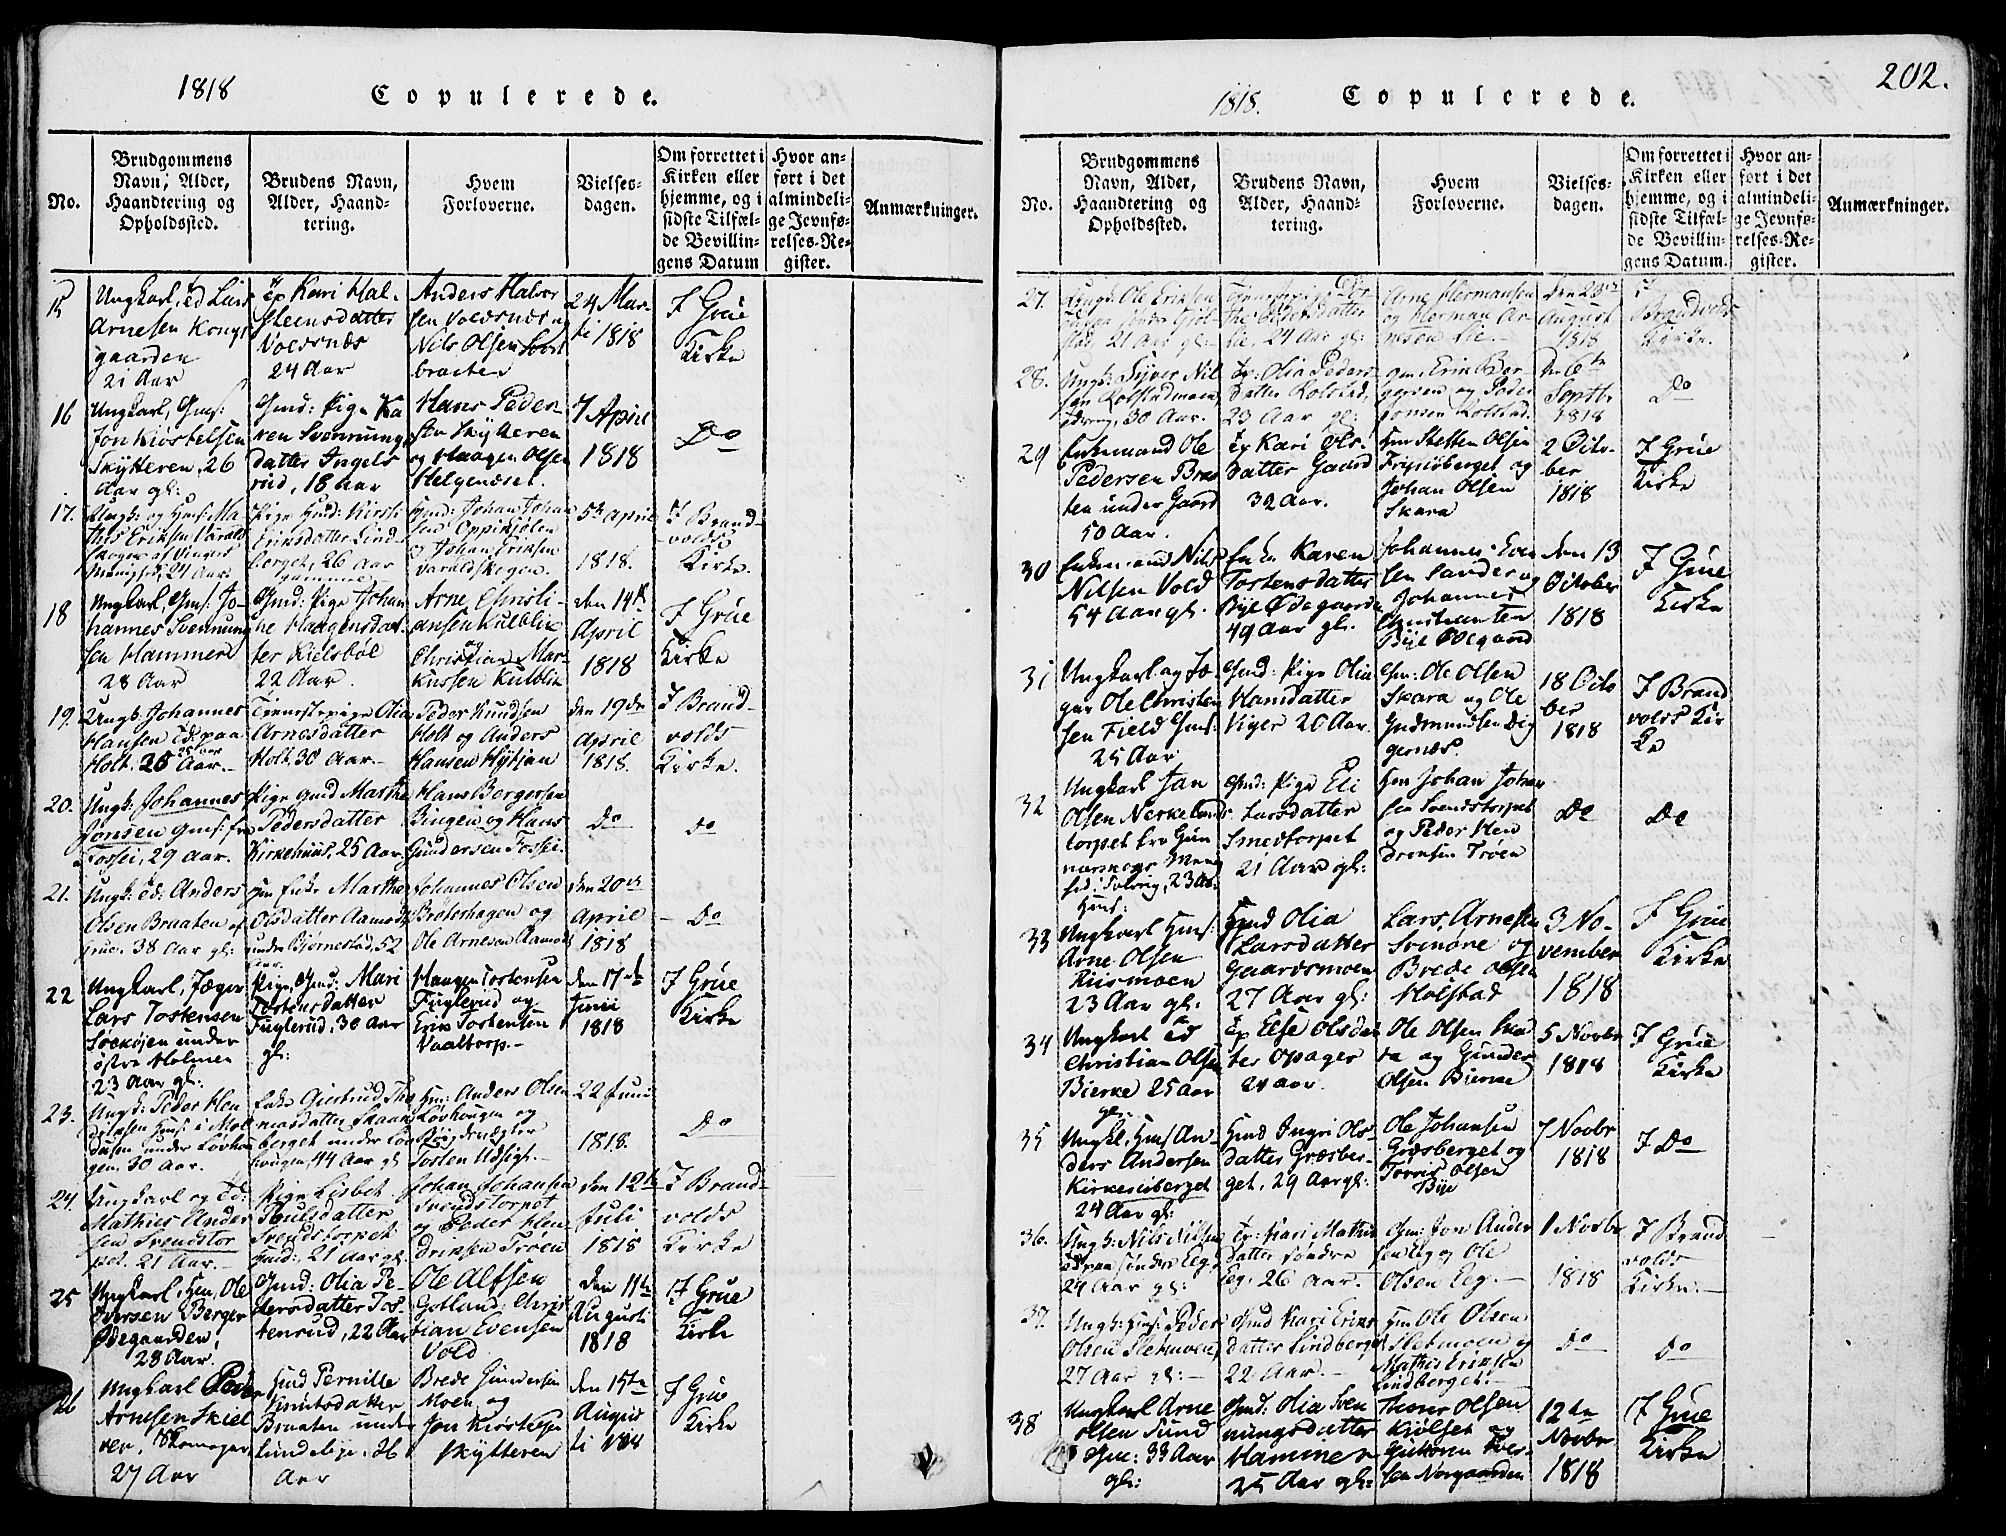 1818
Copulerede.
No.
Brudgommens
Navn, Alder,
Haandtering og
Opholdssted.
Brudens Navn,
Alder, Haand-
tering.
Hvem
Forloverne.
Vielses-
dagen.
Om forrettet i
Kirken eller
hjemme, og i
sidste Tilfæl-
de Bevillin-
gens Datum
Hvor an-
ført i det
almindeli-
ge Jevnfø-
relses-Re-
gister.
Anmærkninger.
15
Ungkarl, Ed Lars
Arnesen Kongs
gaarden
21 Aar
Ep Kari Hal-
steensdatter
Voldsnæs
24 Aar
Anders Halvor
sen Voldsnæs og
Nils Olsen
braaten
24 Mar-
ti 1818
I Grue
Kirke
16
Ungkarl, Gms:
Jon Kiøstelsen
Skytteren, 26
Aar gl:
Gmd: Pige Ka
ren Svennungs
datter Ingels
rud, 18 Aar
Hans Peder-
sen Skytteren
og Haagen Olsen
Helgenæset.
7 April
1818
Do
17.
Ungk: og Hms: Ma-
this Eriksen Varald
skogen af Vinger
Menighed, 24 Aar.
Pige Hmd: Kirsti
Eriksdatter Lind-
berget, 26 Aar
gammel
Gmd: Johan Johan
sen Oppikjølen
og Johan Eriksen
Varaldskogen.
5te April
1818.
I Brand-
volds
Kirke.
18
Ungkarl, Gms: Jo-
hannes Svennung
sen Hammer
28 Aar
Gmd: Pige Johan
ne Haagensdat-
ter Kielsbøl
22 Aar.
Arne Christi-
ansen Kulblik
og
Christian Mar-
kussen Kulblik
den 14de
April
1818
I Grue
Kirke
19.
Ungk. Johannes
Hansen Ed: paa
25 aar
Holt. 28 Aar.-
Tjenestepige Olia
Arnesdatter
Holt. 30 Aar.-
Peder Knudsen
Holt og Anders
Hansen Hytjan
den 19de
April
1818.
I Brand-
volds
Kirke.
20.
Ungk: Johannes
Jonsen Gms: fra
Tossei, 29 Aar.
Pige Gmd Marthe
Pedersdatter
Kirkehuus, 25 Aar
Hans Bergersen
Bingen og Hans
Gundersen Tossei.
Do
Do
21.
Ungk: Ed: Anders
Olsen Braaten af
Grue. 38 Aar gl:
Gm Enke Marthe
Olsdatter Aamodt
under Bjørnestad, 52
Aar.
Johannes Olsen
Brøterhagen og
Ole Arnesen Aamodt
den 20de
April
1818
Do
22
Ungkarl, Jæger
Lars Tostensen
under
østre Holmen
23 Aar gl:
Pige, Gmd: Mari
Tostensdatter
Fuglerud, 30 Aar
gl:
Haagen Tostensen
Fuglerud og
Erik Tostensen
Vaaltorp.-
den 17de
Juni
1818
I Grue
Kirke
23.
Ungk: Peder Hen
driksen Hms: i
under Løvhou
gen. 30 Aar.
Enke Giertrud Tho
masdatter Skaan
berget under Løv
hougen, 44 Aar gl
Hm: Anders Olsen
Løvhougen og
Tosten Udsigt.-
22 Juni
1818.
Do
24.
Ungkarl og Ed:
Mathies Ander
sen Svendstor
pet. 21 Aar.-
Pige Lisbet
Poulsdatter
Svendstorpet
Gmd: 21 Aar gl
Johan Johansen
Svendstorpet
og Peder Hen
driksen Trøen
den 12te
Juli
1818
I Brand-
volds
Kirke
25
Ungkarl, Hm, Ole
Iversen Berger
Ødegaarden,
28 Aar.
Gmd: Olia Pe-
dersdatter Tos-
tenrud, 22 Aar
Ole Alfsen
Gotland, Chris
tian Evensen
Vold
den 11te
Augusti
1818
I Grue
Kirke
26
Ungkarl Peder
Arnesen Skiel
ver, Skomager
27 Aar
Hmd Pernille
Knutsdatter
Braaten under
Lundebye, 26
Aar
Brede Gundersen
Moen og
Jon Kiøstelsen
Skytteren
den 15te
Augus
ti 1818
I Grue
Kirke
1818.
Copulerede.
202.
No.
Brudgommens
Navn, Alder,
Haandtering og
Opholdssted.
Brudens Navn,
Alder, Haand-
tering.
Hvem
Forloverne.
Vielses-
dagen.
Om forrettet i
Kirken eller
hjemme, og i
sidste Tilfæl-
de Bevillin-
gens Datum.
Hvor an-
ført i det
almindeli-
ge Jevnfø-
relses-Re-
gister.
Anmærkninger.
27.
Ungk: Ole Eriksen
21 Aar gl:
Tjenestepige
Olsdatter
Lie, 24 Aar gl:
Arne Hermansen
og Herman Ar-
nesen Lie.-
den 23de
August
1818
I
Brandvolds
Kirke.
28.
Ungk: Syver Nil
sen Rotstadmoen,
30 Aar.
Ep: Olia Peders
datter Rotstad,
23 Aar gl:
Gm. Erik Ber
gersen og Peder
Jonsen Rotstad.
den 6te
Septbr
1818
Do
29
Enkemand Ole
Pedersen Braa
ten under Gaard
50 Aar.
Ep Kari Ols-
datter Gaard
32 Aar.
Hm Steffen Olsen
Frysjøberget og
Johan Olsen
Skara
2 Octo-
ber
1818
I Grue
Kirke
30
Enkemand Nils
Nilsen Vold
54 Aar gl.
Enke Karen
Tostensdatter
Bye Ødegaarden
49 Aar gl.
Johannes Even
sen Sander og
Johannes
Bye Ødegaard
den 13
October
1818
I Grue
Kirke
31
Ungkarl og Jæ-
ger Ole Christen
sen Field Gms:
25 Aar
Gmd: Pige Olia
Hansdatter
Viger 20 Aar
Gm: Ole Olsen
Skara og Ole
Gudmundsen Dig
gernæs
18 Octo
ber
1818
I Brand
volds Kir
ke
32
Ungkarl Jan
Olsen Nerkeland
torpet fra Gun
narskogs Menig
hed i Sverig, 23 Aar
Hms:
Gmd: Pige Eli
Larsdatter
Smedtorpet
21 Aar gl:
Hm Johan Johan
sen Svendstorpet
og Peder Hen
driksen Trøen
Do
Do
33
Ungkarl Hms:
Arne Olsen
Riismoen
23 Aar gl:
Hmd Olia
Larsdatter
Gaardsmoen
27 Aar gl:
Lars Arnesen
Svenøre og
Brede Olsen
Holstad
3 No-
vember
1818
I Grue
Kirke
34
Ungkarl Ed
Christian Olsen
Bierke 25 Aar
gl.
Ep Else Olsdat
ter Opager
24 Aar.
Ole Olsen Ska
ra og Gunder
Olsen Bierke
5 Novbr
1818
I Grue
Kirke
35
Ungkl, Hms An-
ders Andersen
Kirkesieberget
24 Aar gl:
Hmd Ingri Ols-
datter Græsber-
get, 29 Aar gl:
Ole Johansen
Græsberget og
Torris Olsen
Bye
7 Novbr
1818
I Do
36.
Ungk: Nils Nilsen
Ed paa søndre Eeg,
24 Aar gl:
Ep: Kari Mathis
datter søndre
Eeg, 26 Aar.
Gm: Jon Ander
sen Eeg og Ole
Olsen Eeg.-
1 Novbr
1818
I Brand
volds
Kirke.-
37.
Ungk: Hms: Peder
Olsen Sletmoen,
27 Aar gl:-
Gmd Kari Eriks
datter Lindberget
22 Aar.-
Hm Ole Olsen
Sletmoen og
Mathis Eriksen
Lindberget.-
Do
Do
38
Ungkarl Arne
Olsen Sund
Gm: 33 Aar
gl:
Gmd: Olia Sven
nungsdatter
Hammer
25 Aar gl:
Thore Olsen
Kiølset og
Guttorm Iver-
sen Norgaarden
12te
Novbr
1818
I Grue
Kirke